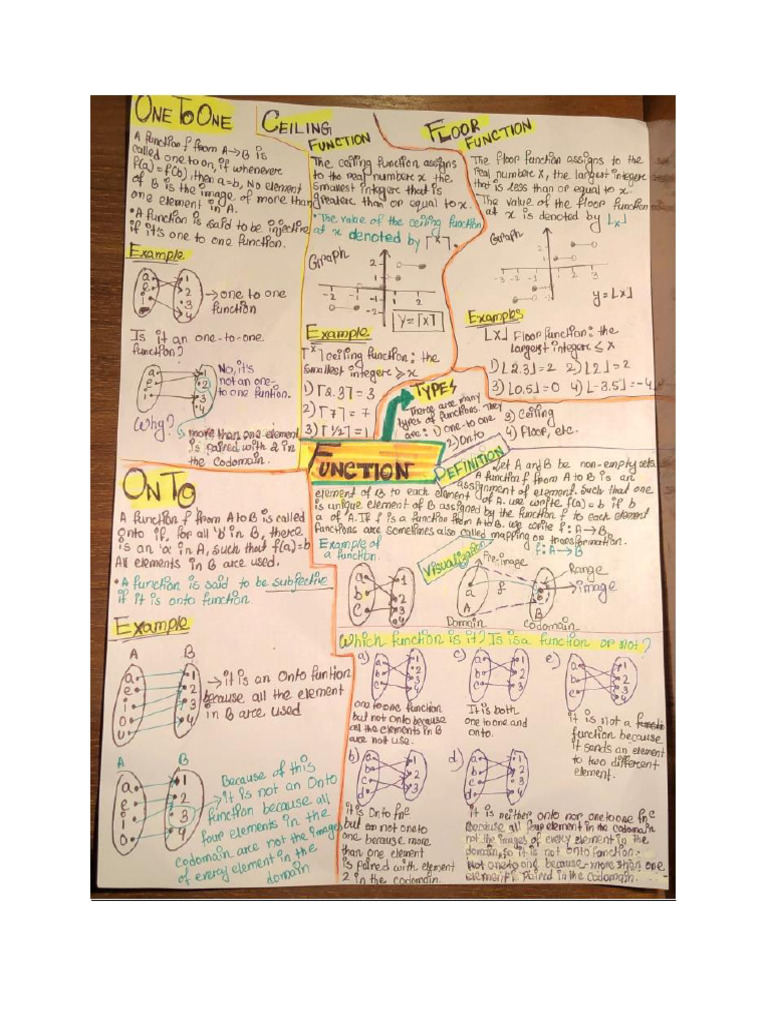 ONE TO ONE
A function f from A→B is
called one to on, if whenever
f(a)=f(b), then a=b, No element
of B is the image of more than
one element in A.
• A function is said to be injective
if it's one to one function.
Example
a
e
i
o
1
2
3
4
→ one to one
function
Is it an one-to-one
function?
a
e
i
1
2
3
4
No, it's
not an one-
to one funtion.
Why?
more than one element
is paired with 2 in
the Codomain.
CEILING
FUNCTION
The ceiling function assigns
to the real number x the
smallest integer that is
greater than or equal to x.
• The value of the ceiling function
at x denoted by ⌈x⌉.
Graph
2
1
-2 -1
1 2
-1
-2
y=⌈x⌉
Example
⌈x⌉ ceiling function: the
smallest integer ⩾ x
1) ⌈2.3⌉=3
2) ⌈7⌉=7
3) ⌈1/2⌉=1
FLOOR
FUNCTION
The floor function assigns to the
real number X, the largest integer
that is less than or equal to x.
The value of the floor function
at x is denoted by ⌊x⌋
Graph
2
1
-3 -2 -1
1 2 3
y=⌊x⌋
Examples
⌊x⌋ Floor function: the
largest integer ≤ x
1) ⌊2.3⌋=2 2) ⌊2⌋=2
3) ⌊0.5⌋=0 4) ⌊-3.5⌋=-4
TYPES
There are many
types of functions. They
are: 1) one-to one
2) Onto
3) Ceiling
4) Floor, etc.
FUNCTION
DEFINITION
Let A and B be non-empty sets.
A function f from A to B is an
assignment of element. Such that one
element of B to each element of A. we write f(a)=b if b
is unique element of B assigned by the function f to each element
a of A. If f is a function from A to B. we write f:A→B.
Functions are sometimes also called mapping or transformation.
f: A→B
Example of
a function.
a
b
c
1
2
3
4
Visualize
Pre-image
Range
image
a
f
b
A
B
Domain
Codomain
ONTO
A function f from A to B is called
onto if, for all 'b' in B, there
is an 'a' in A, such that f(a)=b
All elements in B are used.
• A function is said to be subjective
if it is onto function.
Example
A B
a
e
i
o
u
1
2
3
4
→ it is an Onto funtion
because all the element
in B are used
A B
a
e
i
o
1
2
3
4
Because of this
it is not an Onto
function because all
four elements in the
codomain are not the images
of every element in the
domain
Which function is it? Is is a function or not?
a)
a
b
c
1
2
3
4
one to one function
but not onto because
all the elements in B
are not use.
c)
a
b
c
1
2
3
It is both
one to one and
onto.
e)
a
b
c
1
2
3
4
it is not a
function because
it sends an element
to two different
element.
b)
a
b
c
d
1
2
3
it is Onto fnc
but not oneto
one because more
than one element
is paired with element
2 in the codomain.
d)
a
b
c
d
1
2
3
4
it is neither onto nor one to one fnc
Because all four element in the codomain
not the images of every element in the
domain, so it is not onto function.
Not one to one because more than one
element is paired in the codomain.